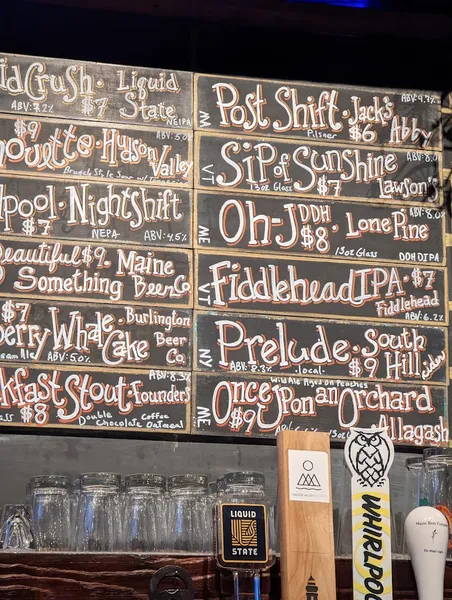 idCrush · Liquid State
$7
ABV: 8.2%
NEIPA
$9
ABV: 5.0%
houette · Hudson Valley
pool · Nightshift
$7
NEPA
ABV: 4.5%
Beautiful · $9 · Maine
Something Beer Co
$7
erry Whale Cake · Burlington Beer Co.
am Ale
ABV: 5.0%
ABV: 8.3%
kfast Stout · Founders
$8
Double Chocolate Coffee Oatmeal
ABV: 4.7%
Post Shift · Jack's Abby
Pilsner
$6
ABV: 8.0%
VT
Sip of Sunshine · Lawson
13oz Glass
$7
ABV: 8.0%
ME
Oh-J DDH · Lone Pine
$8
13oz Glass
DDH DIPA
VT
Fiddlehead IPA · $7
Fiddlehead
ABV: 6.2%
NY
Prelude · South Hill
ABV: 8.3%
local
$9
cider
Wild Ale Aged on Peaches
ME
Once Upon an Orchard
$9
Allagash
LIQUID
STATE
WHIRLPOO
Maine Beer Company
do what's right